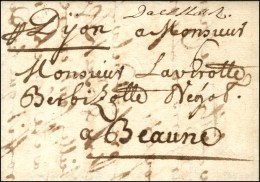 Dijon a Monsieur
Monsieur Lavirotte
Berbizotte Négot.
a Beaune